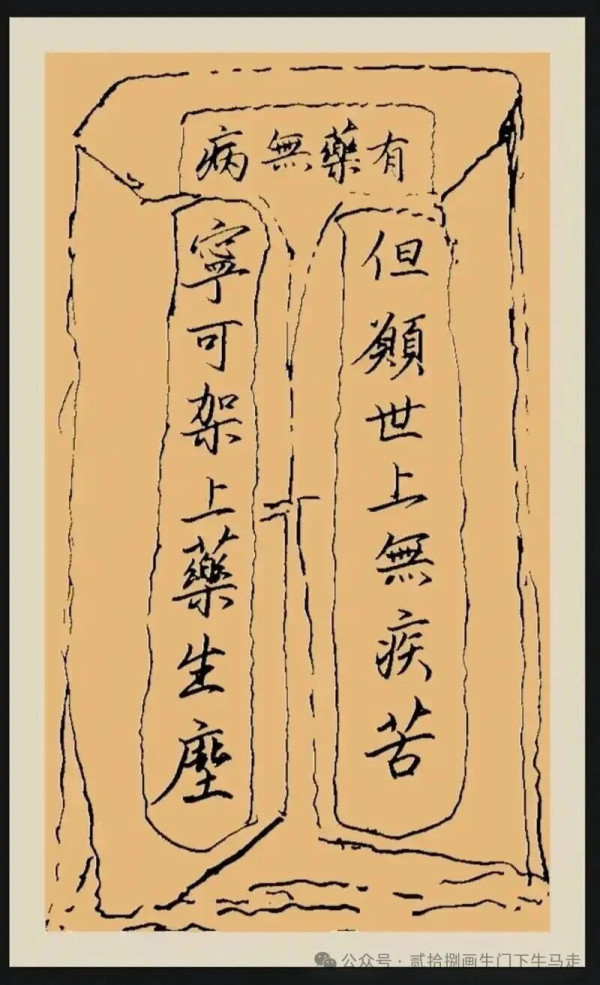 有藥無病
但願世上無疾苦
寧可架上藥生塵
公众号·贰拾捌画生门下牛马走